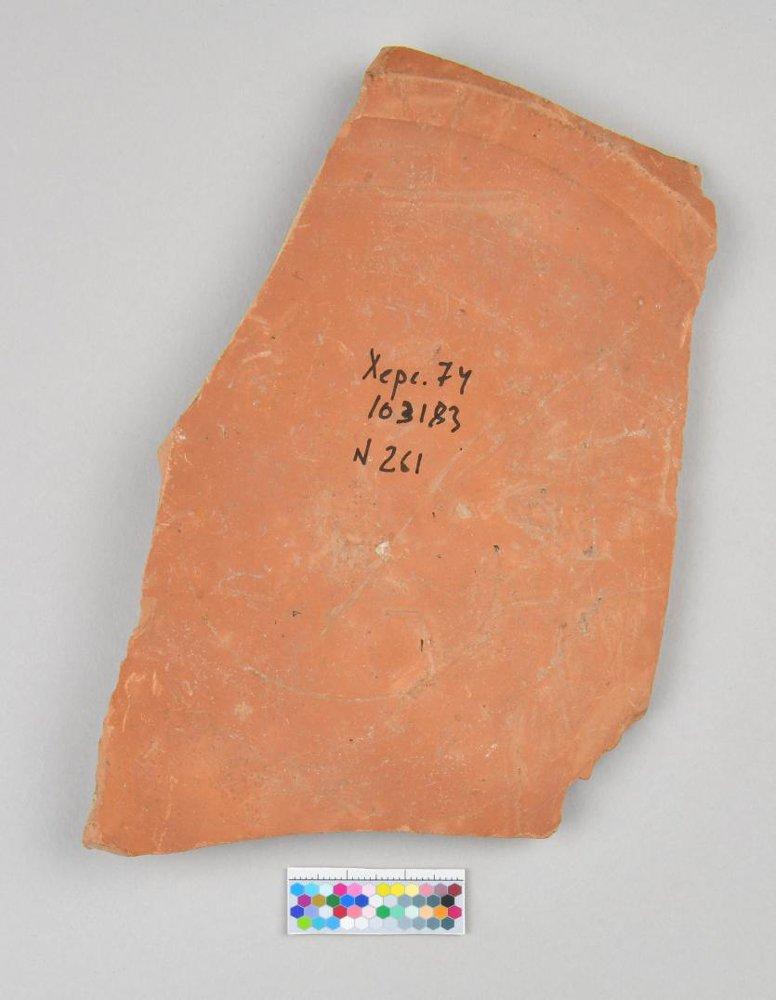 Херс. 74
103183
N 261